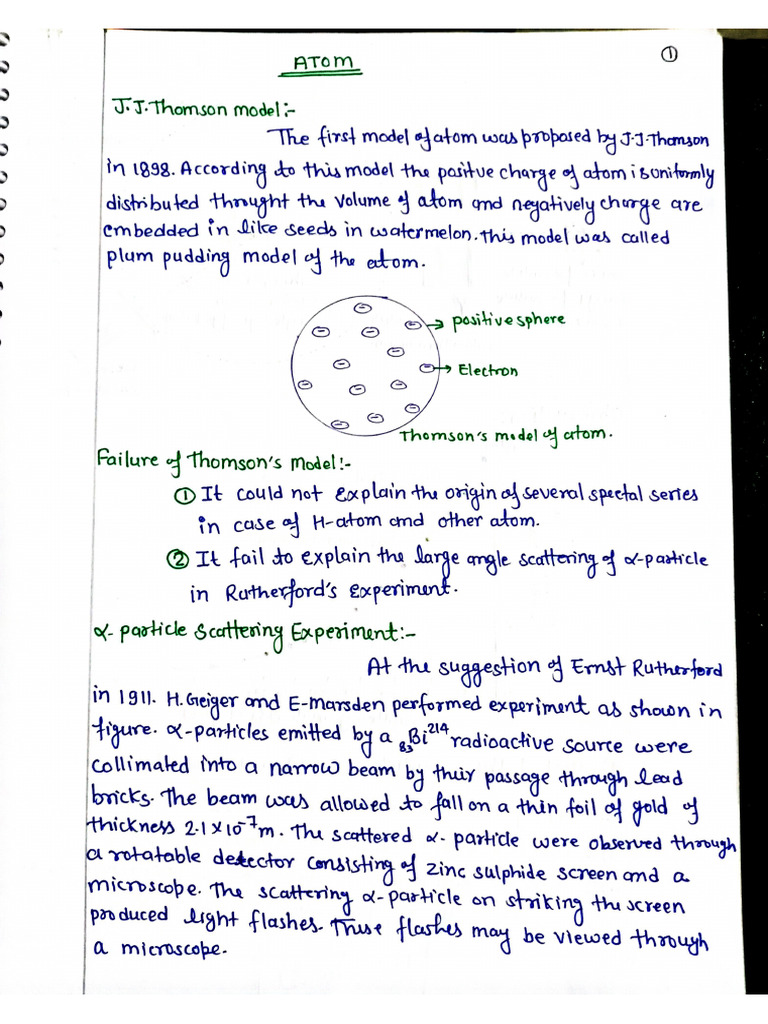 ATOM
①
J.J.Thomson model:-
The first model of atom was proposed by J.J.Thomson
in 1898. According to this model the positive charge of atom is uniformly
distributed throught the volume of atom and negatively charge are
embedded in like seeds in watermelon. This model was called
plum pudding model of the atom.
positive sphere
Electron
Thomson's model of atom.
Failure of Thomson's Model:-
① It could not explain the origin of several spectal series
in case of H-atom and other atom.
② It fail to explain the large angle scattering of α-particle
in Rutherford's experiment.
α-particle Scattering Experiment:-
At the suggestion of Ernst Rutherford
in 1911. H.Geiger and E-Marsden performed experiment as shown in
figure. α-particles emitted by a ₈₃Bi²¹⁴ radioactive source were
collimated into a narrow beam by their passage through lead
bricks. The beam was allowed to fall on a thin foil of gold of
thickness 2.1×10⁻⁷m. The scattered α-particle were observed through
a rotatable detector consisting of zinc sulphide screen and a
microscope. The scattering α-particle on striking the screen
produced light flashes. These flashes may be viewed through
a microscope.